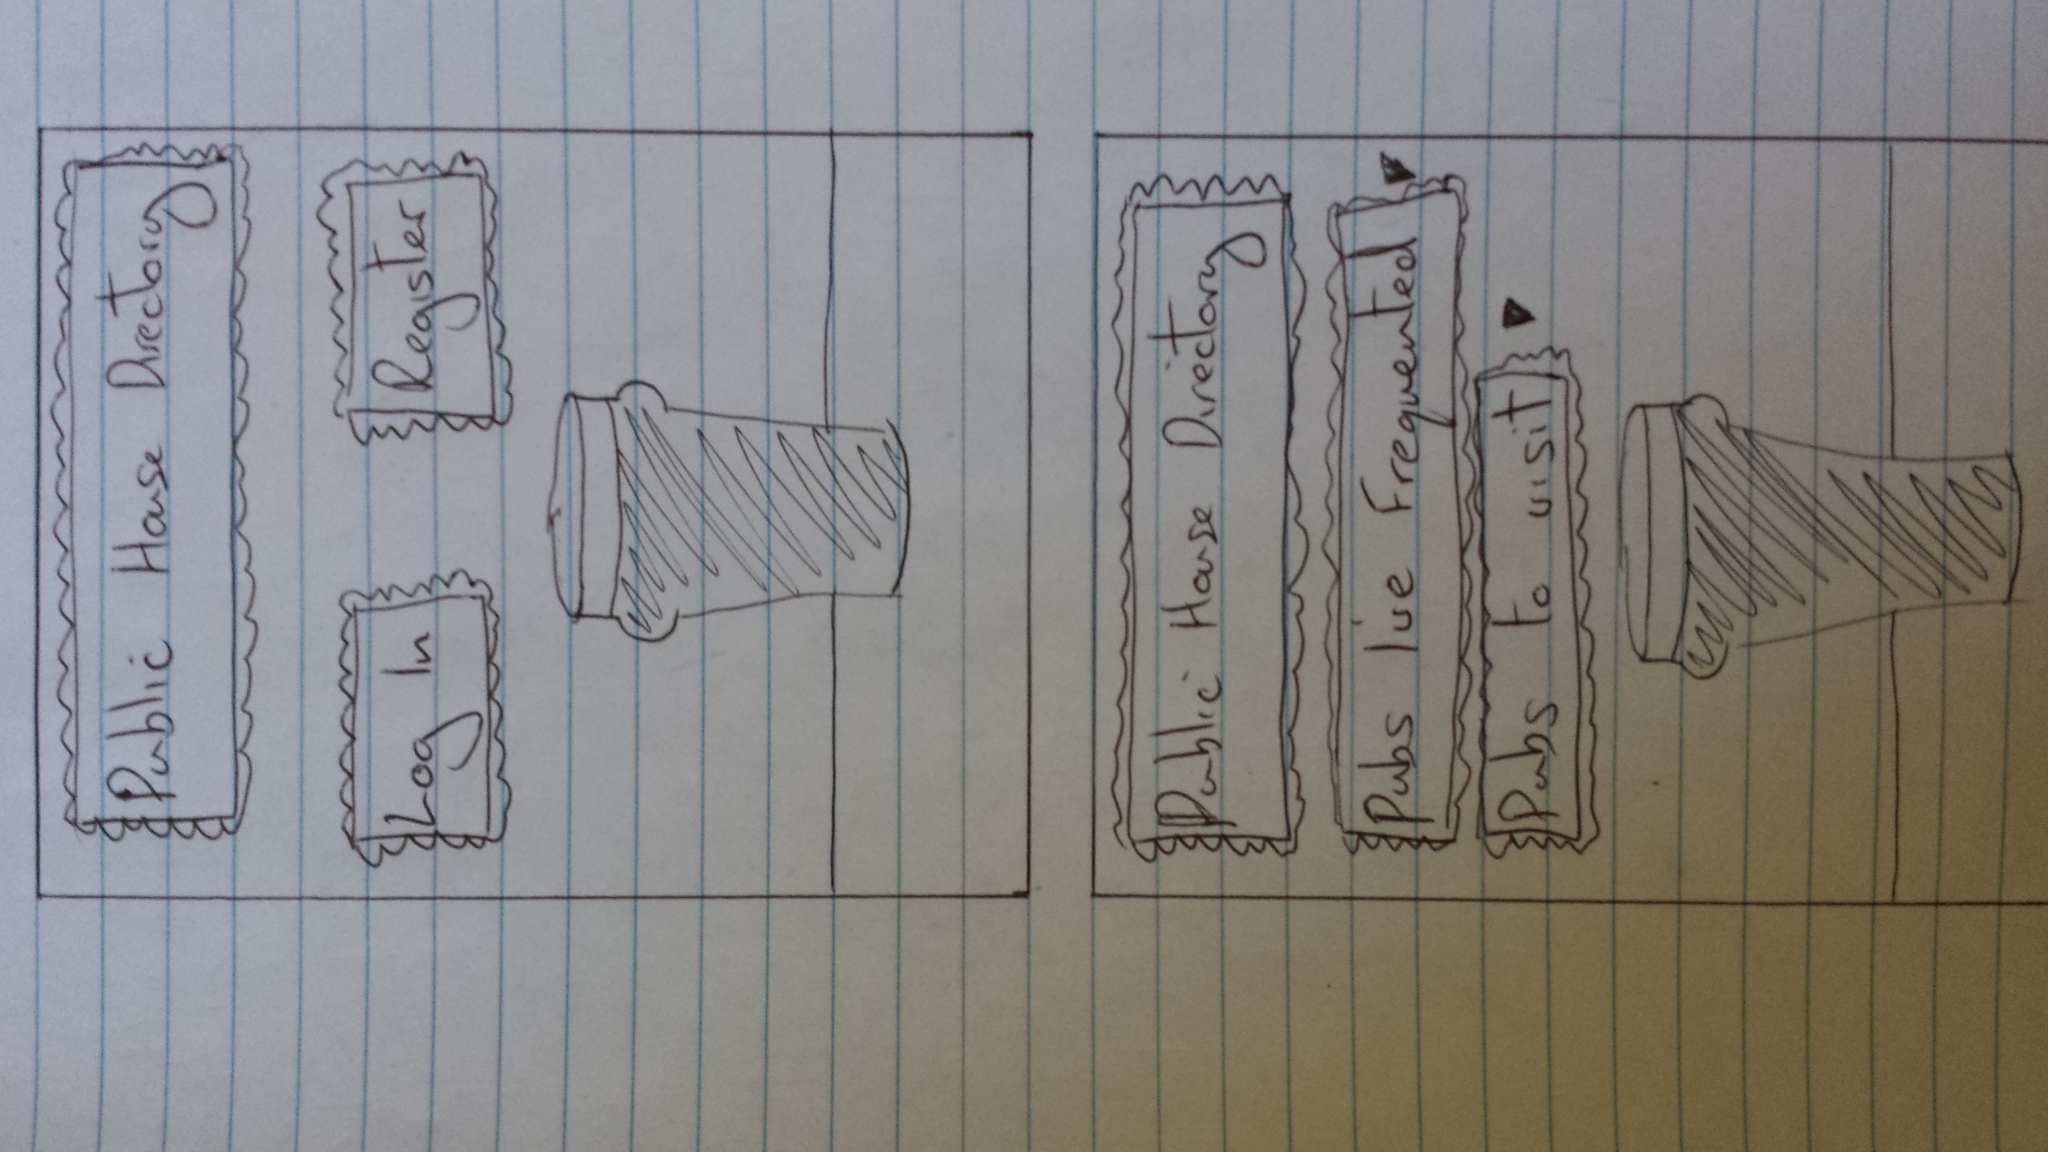 Public House Directory
Log In Register
Public House Directory
Pubs I've Frequented
Pubs to visit